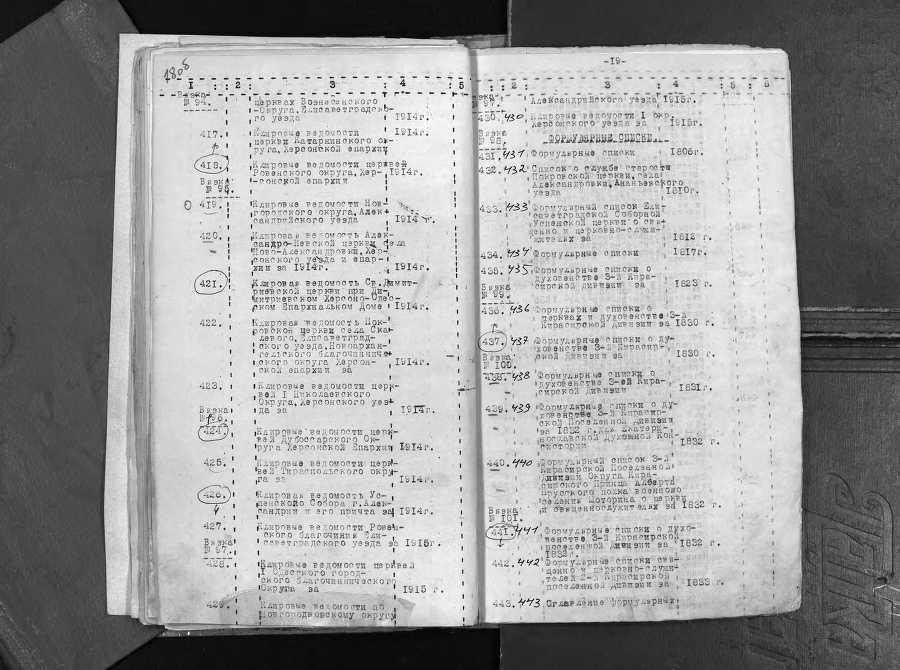 1808
1 2 3 4 5
Вязка
№ 94.
церквах Вознесенского
Округа, Елисаветградско-
го уезда 1914г.
417. Клировые ведомости 1914г.
церкви Катаржинского ок-
руга, Херсонской епархии
418. Клировые ведомости церквей
Ровенского округа, Хер- 1914г.
-сонской епархии
Вязка
№ 95.
419. Клировые ведомости Нов-
городского округа, Алек-
сандрийского уезда 1914 г.
420. Клировая ведомость Алек-
сандро-Невской церкви села
Ново-Александровки, Хер-
сонского уезда и епар-
хии за 1914г. 1914г.
421. Клировая ведомость Св. Димит-
риевской церкви при Ди-
митриевском Херсоно-Одес-
ском Епархиальном Доме 1914г.
422. Клировая ведомость Пок-
ровской церкви села Ска-
левого, Елисаветград-
ского уезда, Новоархан-
гельского благочинниче-
ского округа Херсон- 1914г.
ской епархии за
423. Клировые ведомости церк-
вей I Николаевского
Округа, Херсонского уез-
да за 1914г.
Вязка
№ 96.
424. Клировые ведомости церк-
вей Дубоссарского Ок-
руга Херсонской Епархии 1914г.
425. Клировые ведомости церк-
вей Тираспольского окру-
га за 1914г.
426. Клировая ведомость Ус-
пенского Собора г. Алек-
сандрии и его причта за 1914г.
427. Клировые ведомости Ровен-
ского благочиния Ели-
саветградского уезда за 1915г.
Вязка
№ 97.
428. Клировые ведомости церквей
I Одесского город-
ского благочиннического
Округа за 1915 г.
429. Клировые ведомости по
Новгородковскому округу
-19-
2 3 4 5 6
Вязка
№ 97.
Александрийского уезда 1915г.
430. 430 Клировые ведомости I окр.
Херсонского уезда за 1915г.
Вязка
№ 98.
ФОРМУЛЯРНЫЕ СПИСКИ.
431. 431 Формулярные списки 1806г.
432. 432 Список о службе старосты
Покровской церкви, села
Александровки, Ананьевского
уезда 1810г.
433. 433 Формулярный список Ели-
саветградской Соборной
Успенской церкви о свя-
щенно и церковно-служи-
жителях за 1812 г.
434. 434 Формулярные списки 1817г.
435. 435 Формулярные списки о
духовенстве 3-й Кира-
сирской дивизии за 1823 г.
Вязка
№ 99.
436. 436 Формулярные списки о
церквах и духовенстве 3-й
Кирасирской Дивизии за 1830 г.
437. 437 Формулярные списки о ду-
ховенстве 3-й Кирасир-
ской Дивизии за 1830 г.
Вязка
№ 100.
438. 438 Формулярные списки о
духовенстве 3-ей Кира-
сирской дивизии 1831г.
439. 439 Формулярные списки о ду-
ховенстве 3-й Кирасир-
ской Поселенной Дивизии
за 1832 г. из Екатери-
нославской Духовной Кон-
систории 1832 г.
440. 440 Формулярный список 3-й
Кирасирской Поселенной
Дивизии Округа Кира-
сирского Принца Альберта
Прусского полка военного
селения Моторина о церкви
и священнослужителях за 1832 г.
Вязка
№ 101.
441. 441 Формулярные списки о духо-
венстве 3-й Кирасирской
поселенной Дивизии за 1832 г.
1832г.
442. 442 Формулярные списки свя-
щенно и церковно-служи-
телей 2-й Кирасирской
поселенной Дивизии за 1833 г.
443. 443 Оглавление формулярных